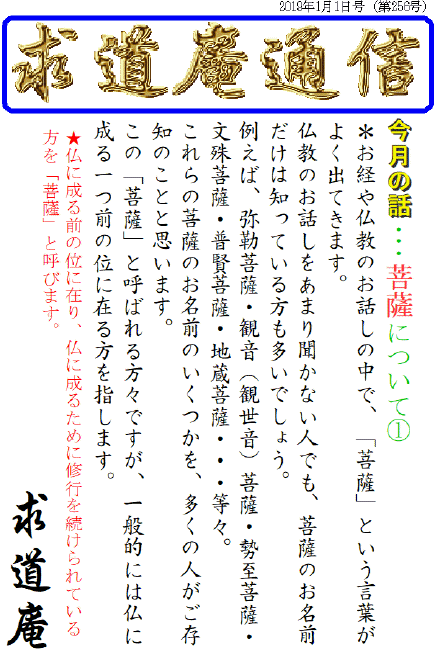 2019年1月1日号（第256号）
求道庵通信
今月の話・・・菩薩について①
＊お経や仏教のお話しの中で、「菩薩」という言葉が
よく出てきます。
仏教のお話しをあまり聞かない人でも、菩薩のお名前
だけは知っている方も多いでしょう。
例えば、弥勒菩薩・観音（観世音）菩薩・勢至菩薩・
文殊菩薩・普賢菩薩・地蔵菩薩・・・等々。
これらの菩薩のお名前のいくつかを、多くの人がご存
知のことと思います。
この「菩薩」と呼ばれる方々ですが、一般的には仏に
成る一つ前の位に在る方を指します。
★仏に成る前の位に在り、仏に成るために修行を続けられている
方を「菩薩」と呼びます。
求道庵